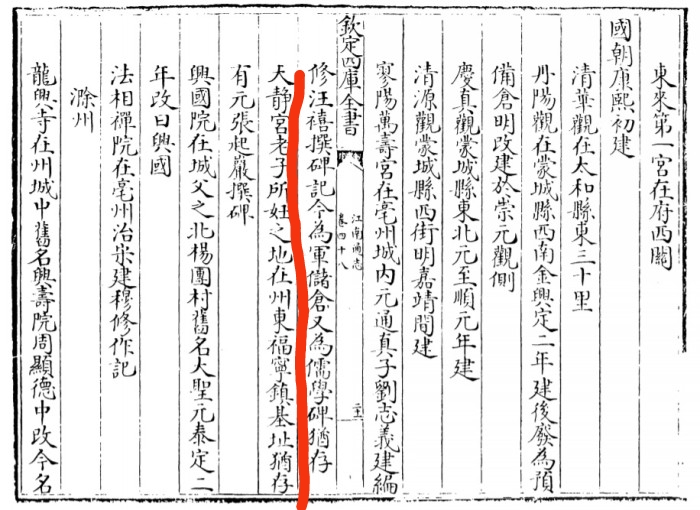 東來第一宮在府西關
國朝康熙初建
清華觀在太和縣東三十里
丹陽觀在蒙城縣西南金興定二年建後廢為預
備倉明改建於崇元觀側
慶真觀蒙城縣東北元至順元年建
清源觀蒙城縣西街明嘉靖間建
寥陽萬壽宮在亳州城內元通真子劉志義建編
欽定四庫全書
江南通志
卷四十八
修汪禧撰碑記今為軍儲倉又為儒學碑猶存
天静宮老子所妊之地在州東福寧鎮基址猶存
有元張起巖撰碑
興國院在城父之北楊團村舊名大聖元泰定二
年改曰興國
法相禪院在亳州治宋建穆修作記
滁州
龍興寺在州城中舊名興壽院周顯德中改今名